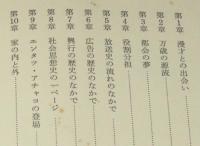 第1章 漫才との出会い……
第2章 万歳の源流
第3章 都会の夢
第4章 役割分担
第5章 放送史の流れのなかで
第6章 広告の歴史のなかで
第7章 興行の歴史のなかで
第8章 社会思想史の一ページ
第9章 エンタツ・アチャコの登場
第10章 家の内と外……